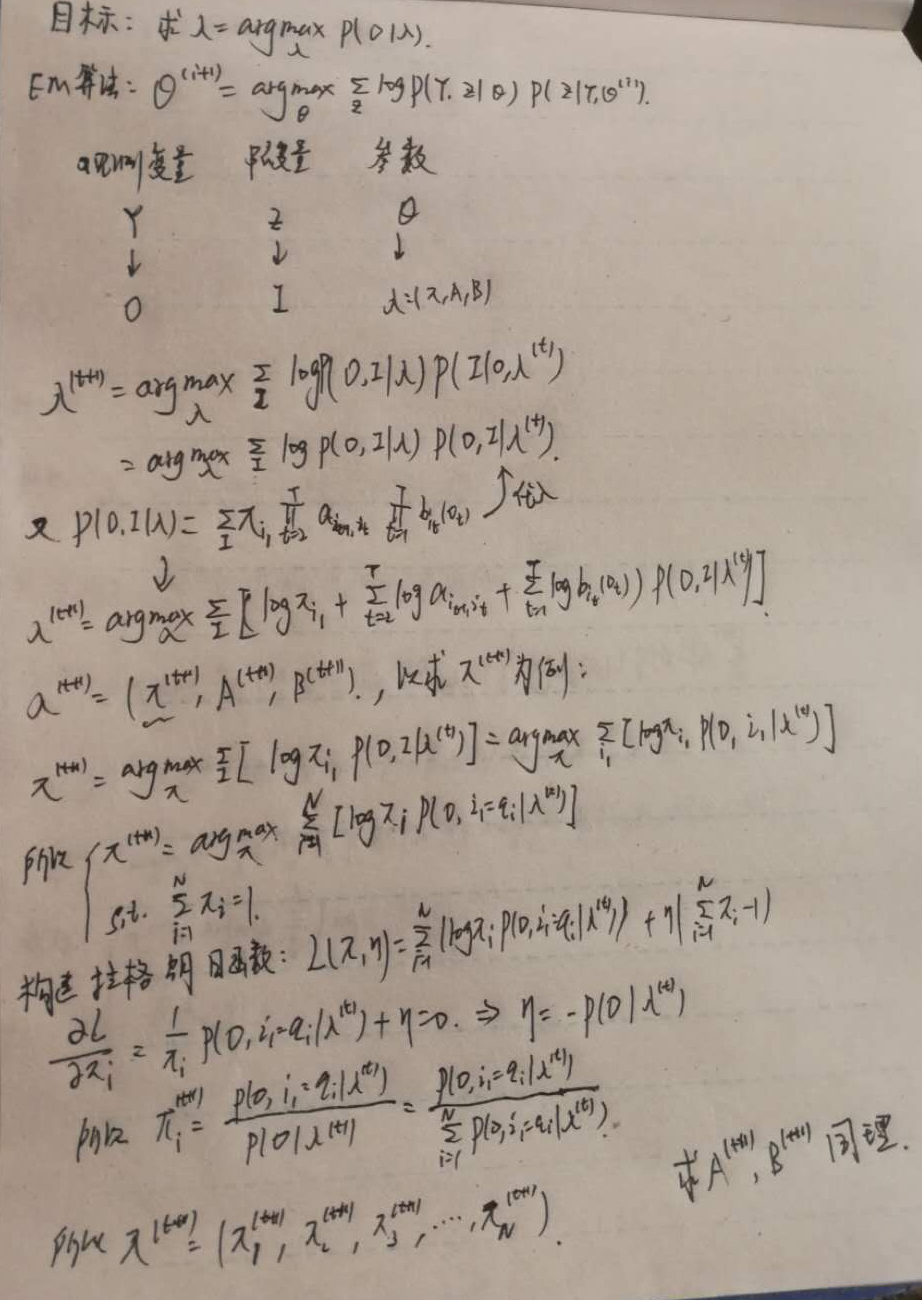 目标：求 λ = argmax_λ P(O|λ).
EM算法：θ^(i+1) = argmax_θ Σ_Z log P(Y, Z|θ) P(Z|Y, θ^(i)).
观测变量 隐变量 参数
Y Z θ
↓ ↓ ↓
O I λ=(π, A, B)
λ^(t+1) = argmax_λ Σ_I log P(O, I|λ) P(I|O, λ^(t))
= argmax_λ Σ_I log P(O, I|λ) P(O, I|λ^(t)).
又 P(O, I|λ) = Σ_I π_{i_1} ∏_{t=2}^T a_{i_{t-1}, i_t} ∏_{t=1}^T b_{i_t}(o_t) ↑代入
↓
λ^(t+1) = argmax_λ Σ_I [(log π_{i_1} + Σ_{t=2}^T log a_{i_{t-1}, i_t} + Σ_{t=1}^T log b_{i_t}(o_t)) P(O, I|λ^(t))]
λ^(t+1) = (π^(t+1), A^(t+1), B^(t+1)). , 以求 π^(t+1) 为例：
π^(t+1) = argmax_π Σ_I [log π_{i_1} P(O, I|λ^(t))] = argmax_π Σ_{i_1} [log π_{i_1} P(O, i_1|λ^(t))]
所以 { π^(t+1) = argmax_π Σ_{i=1}^N [log π_i P(O, i_1=q_i|λ^(t))]
s.t. Σ_{i=1}^N π_i = 1.
构造拉格朗日函数：L(π, η) = Σ_{i=1}^N (log π_i P(O, i_1=q_i|λ^(t))) + η(Σ_{i=1}^N π_i - 1)
∂L/∂π_i = 1/π_i P(O, i_1=q_i|λ^(t)) + η = 0. ⇒ η = -P(O|λ^(t))
所以 π_i^(t+1) = P(O, i_1=q_i|λ^(t)) / P(O|λ^(t)) = P(O, i_1=q_i|λ^(t)) / Σ_{i=1}^N P(O, i_1=q_i|λ^(t)).
求 A^(t+1), B^(t+1) 同理.
所以 π^(t+1) = (π_1^(t+1), π_2^(t+1), π_3^(t+1), ⋯, π_N^(t+1)).